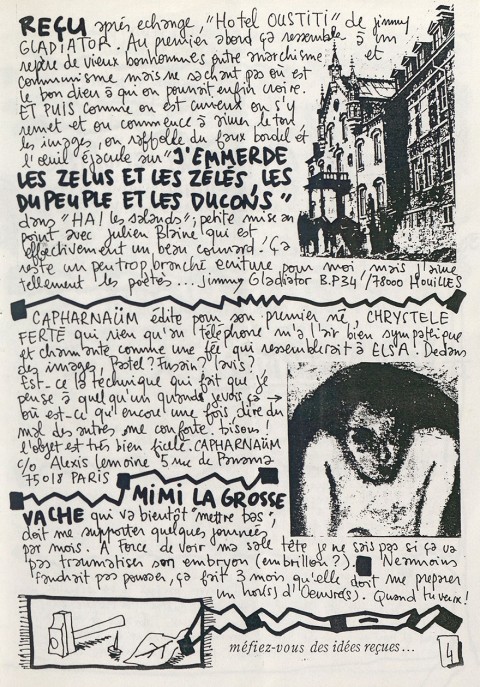 REÇU après echange, "Hotel OUSTITI" de jimmy
GLADIATOR. Au premier abord ça ressemble à un
repère de vieux bonhommes entre anarchisme et
communisme mais ne sachant pas où est
le bon dieu à qui on pourrait enfin croire.
ET PUIS comme on est curieux on s'y
remet et on commence à aimer le tout
les images, on raffolle du faux bordel et
l'oeuil éjacule sur "J'EMMERDE
LES ZELUS ET LES ZÉLÉS, LES
DUPEUPLE ET LES DUCONS"
dans "HA! les salauds"; petite mise au
point avec Julien Blaine qui est
effectivement un beau connard! Ça
reste un peu trop branché ecriture pour moi, mais j'aime
tellement les poètes... Jimmy Gladiator B.P34/78000 HOUILLES
CAPHARNAÜM édite pour son premier né, CHRYSTELE
FERTÉ qui rien qu'au téléphone m'a l'air bien sympatique
et charmante comme une fée qui ressemblerait à ELSA. Dedans
des images, Pastel? Fusain? lavis?
Est-ce la technique qui fait que je
pense à quelqu'un quand je vois ça →
où est-ci qu'encor une fois dire du
mal des autres me conforte. bisous!
l'objet est très bien ficelé. CAPHARNAÜM
c/o Alexis Lemoine 5 rue de Panama
75018 PARIS
MIMI LA GROSSE
VACHE qui va bientôt "mettre bas",
doit me supporter quelques journées
par mois. A force de voir ma sale tête je ne sais pas si ça va
pas traumatiser son embryon (embrillon?). Neanmoins
faudrait pas pousser, ça fait 3 mois qu'elle doit me préparer
un hors(s) d'Oeuvre(s). Quand tu veux!
méfiez-vous des idées reçues...
4